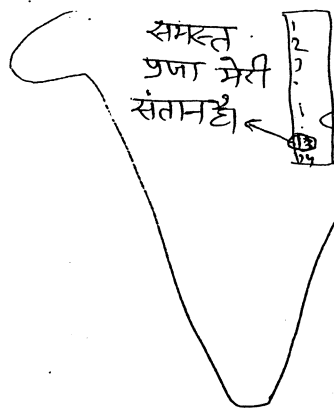 समस्त
प्रजा मेरी
संतान है।
1
2
3
13
14